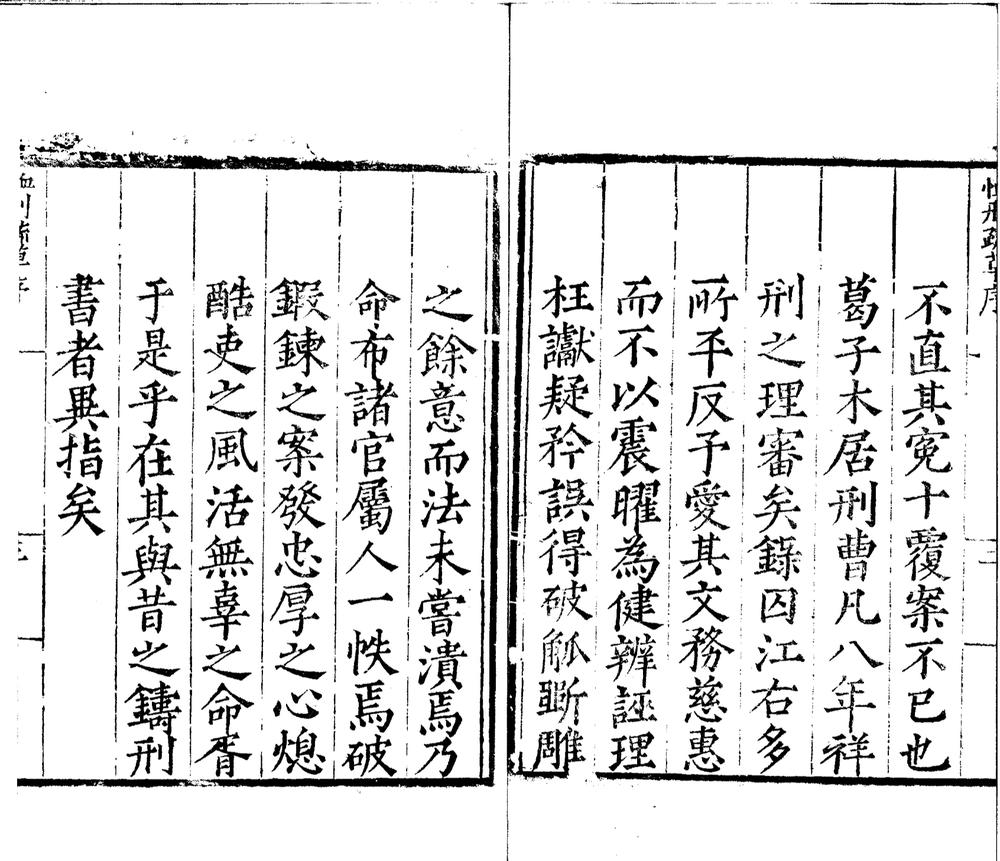 恤刑疏草序
二
不直其冤十覆案不已也
葛子木居刑曹凡八年祥
刑之理審矣錄囚江右多
所平反予愛其文務慈惠
而不以震曜為健辨誣理
枉讞疑矜誤得破觚斲雕
之餘意而法未嘗潰焉乃
命布諸官屬人一帙焉破
鍜鍊之案發忠厚之心熄
酷吏之風活無辜之命胥
于是乎在其與昔之鑄刑
書者異指矣
恤刑疏草序
三